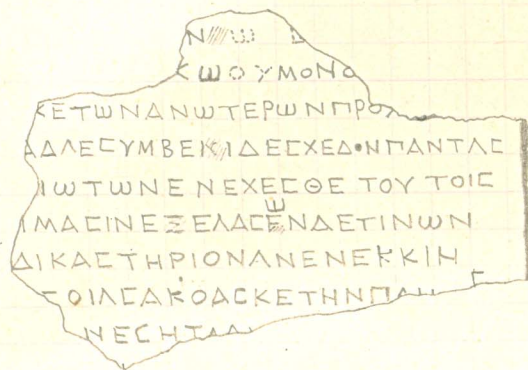 Ν ω
κωουμονο
κετωνανωτερωνπρο
αδλεсυμβεκιδεсχεδονπανταс
ιωτωνενεχεсθετουτοιс
ιμαсινεξελαсενδετινων
ω
δικαсτηριονανενεκκιν
τοιαсακοαсκετηνπ
νεсητα